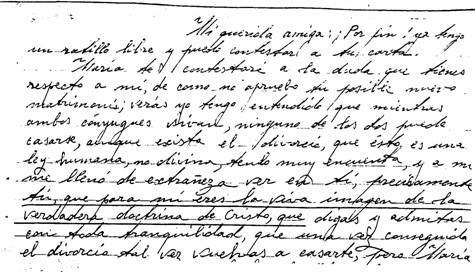 Mi querida amiga: ¡Por fin! ya tengo
un ratillo libre y puedo contestar a tu carta.
María te contestaré a la duda que tienes
respecto a mi, de como no apruebo tu posible nuevo
matrimonio; verás yo tengo entendido que mientras
ambos cónyugues vivan, ninguno de los dos puede
casarse, aunque exista el divorcio, que esto, es una
ley humana, no divina, tenlo muy encuenta, y a mi
me llenó de extrañeza ver en tí, precisamente
tú, que para mi eres la viva imagen de la
verdadera doctrina de Cristo, que digas y admitas
con toda tranquilidad, que una vez conseguido
el divorcio tal vez vuelvas a casarte, pero María